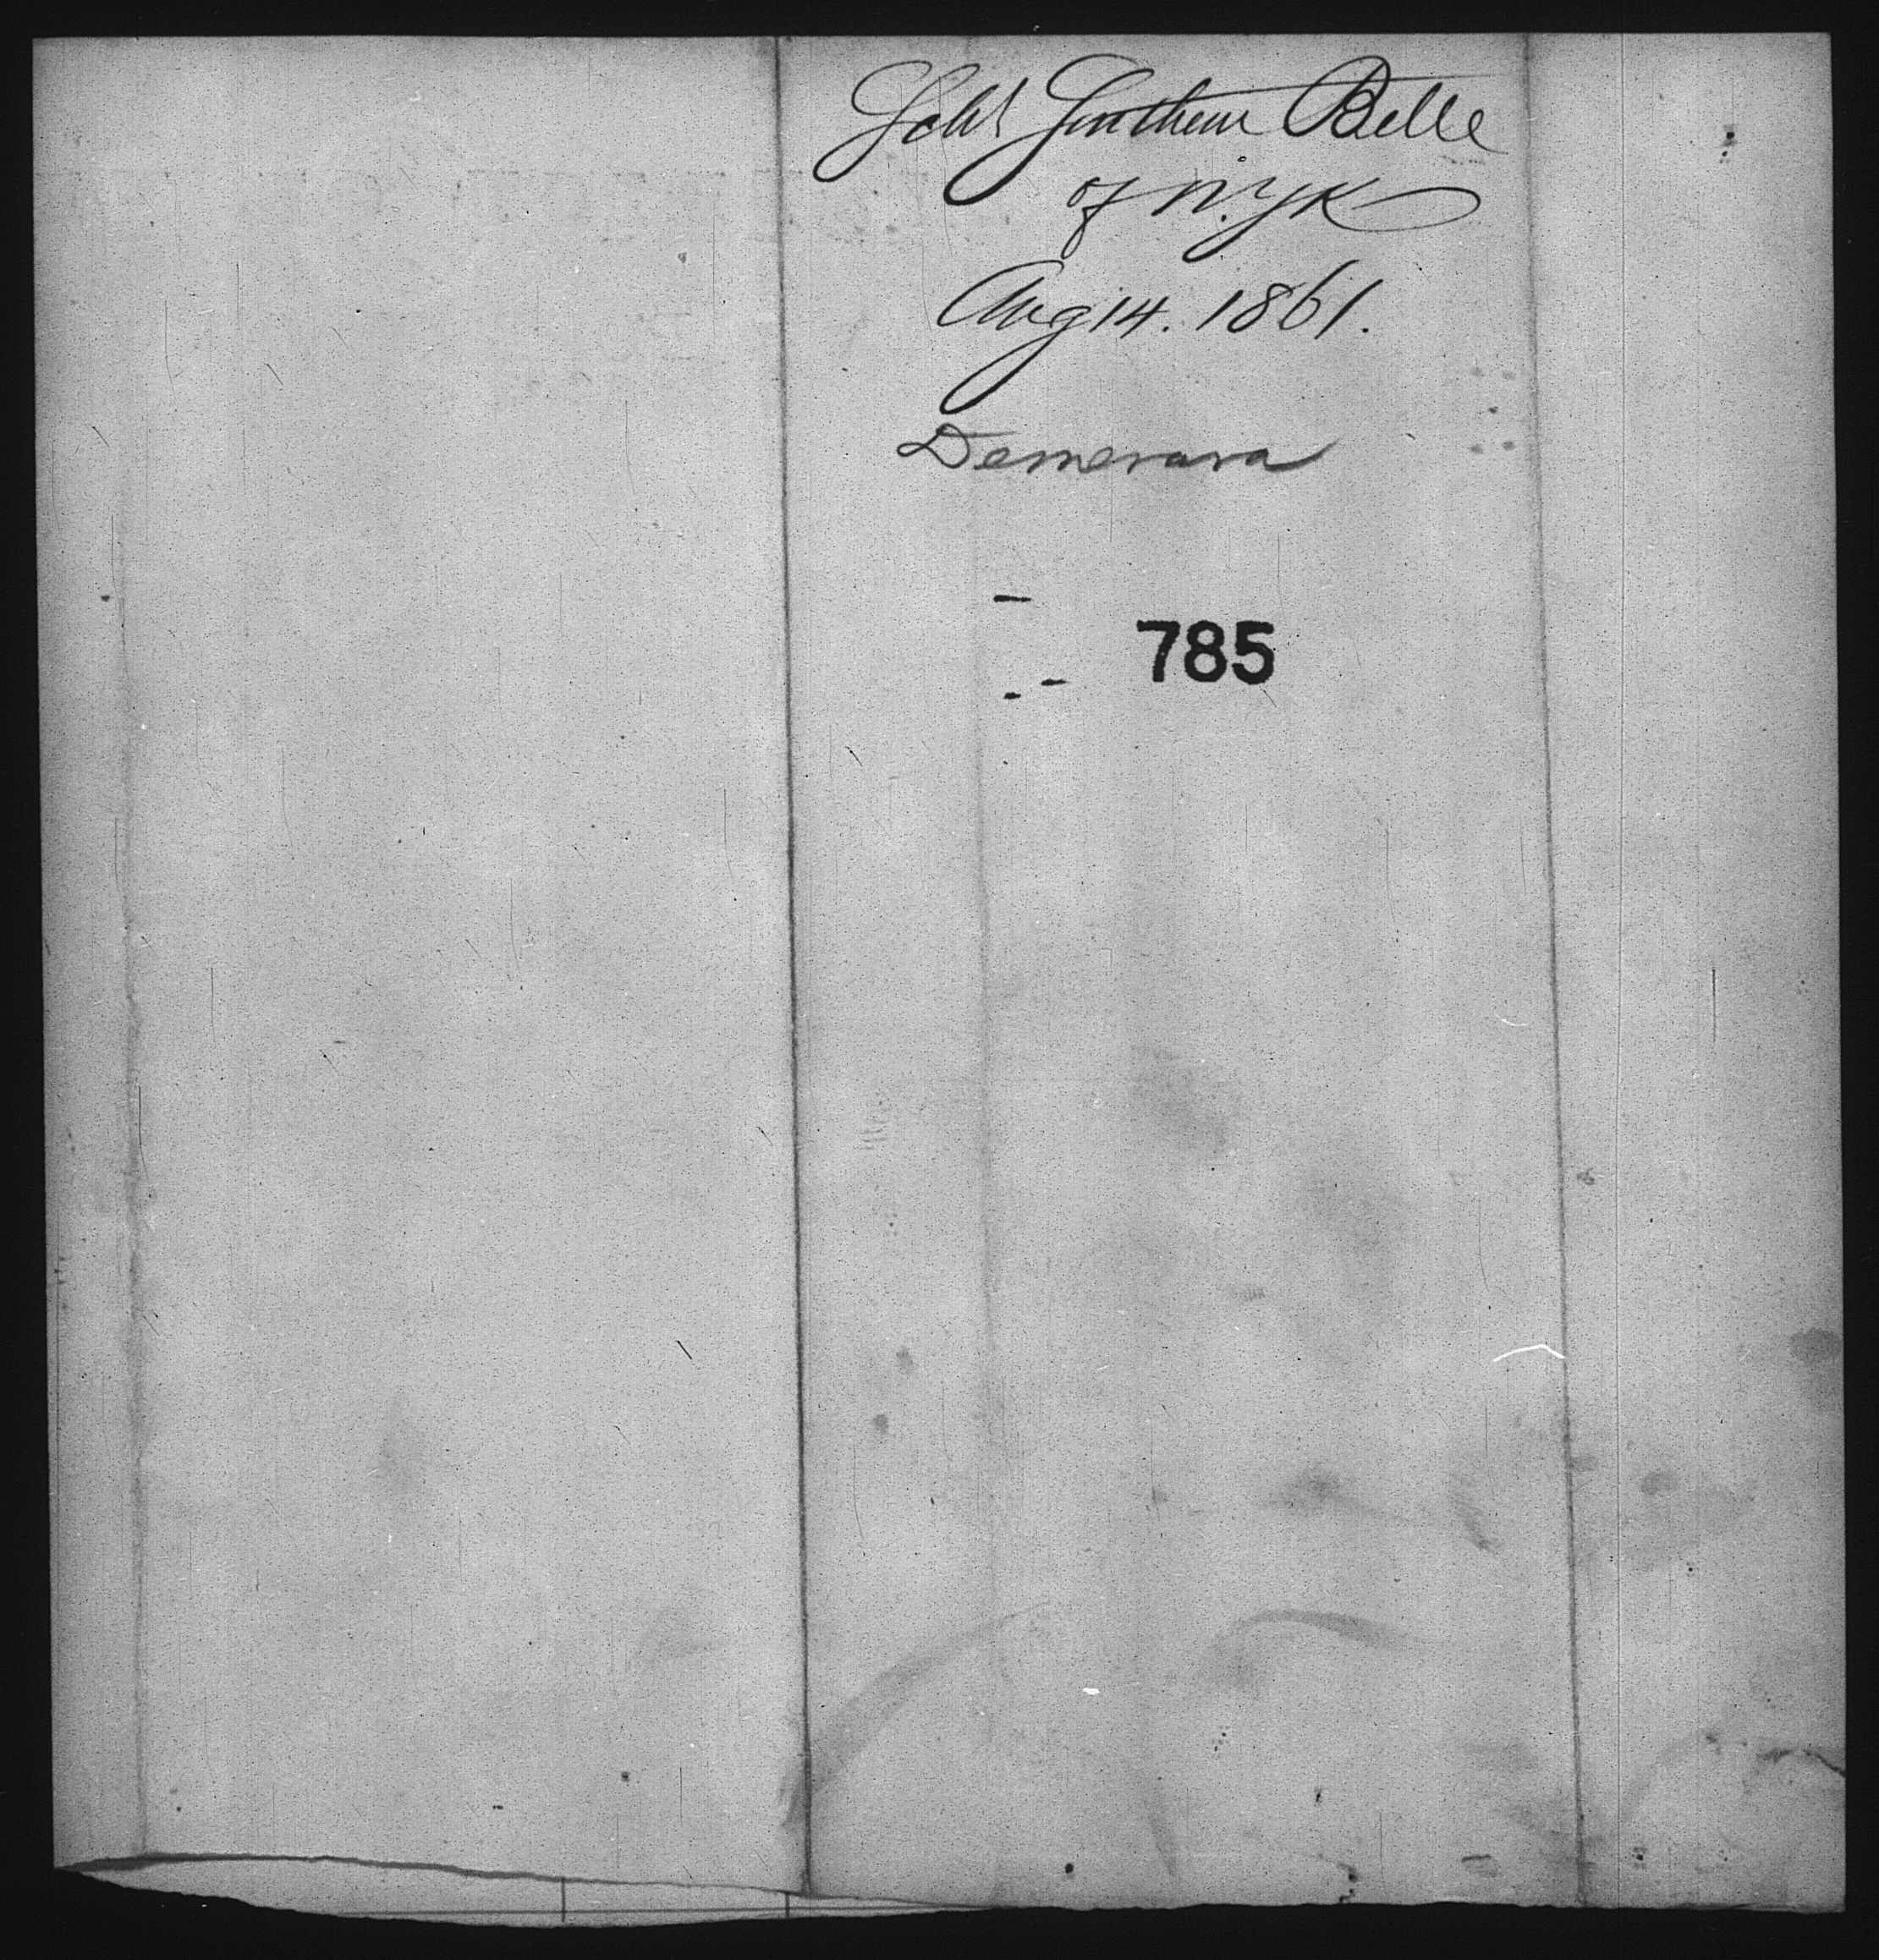 Schr Southern Belle
of N.Yk
Aug 14. 1861.
Demerara
785